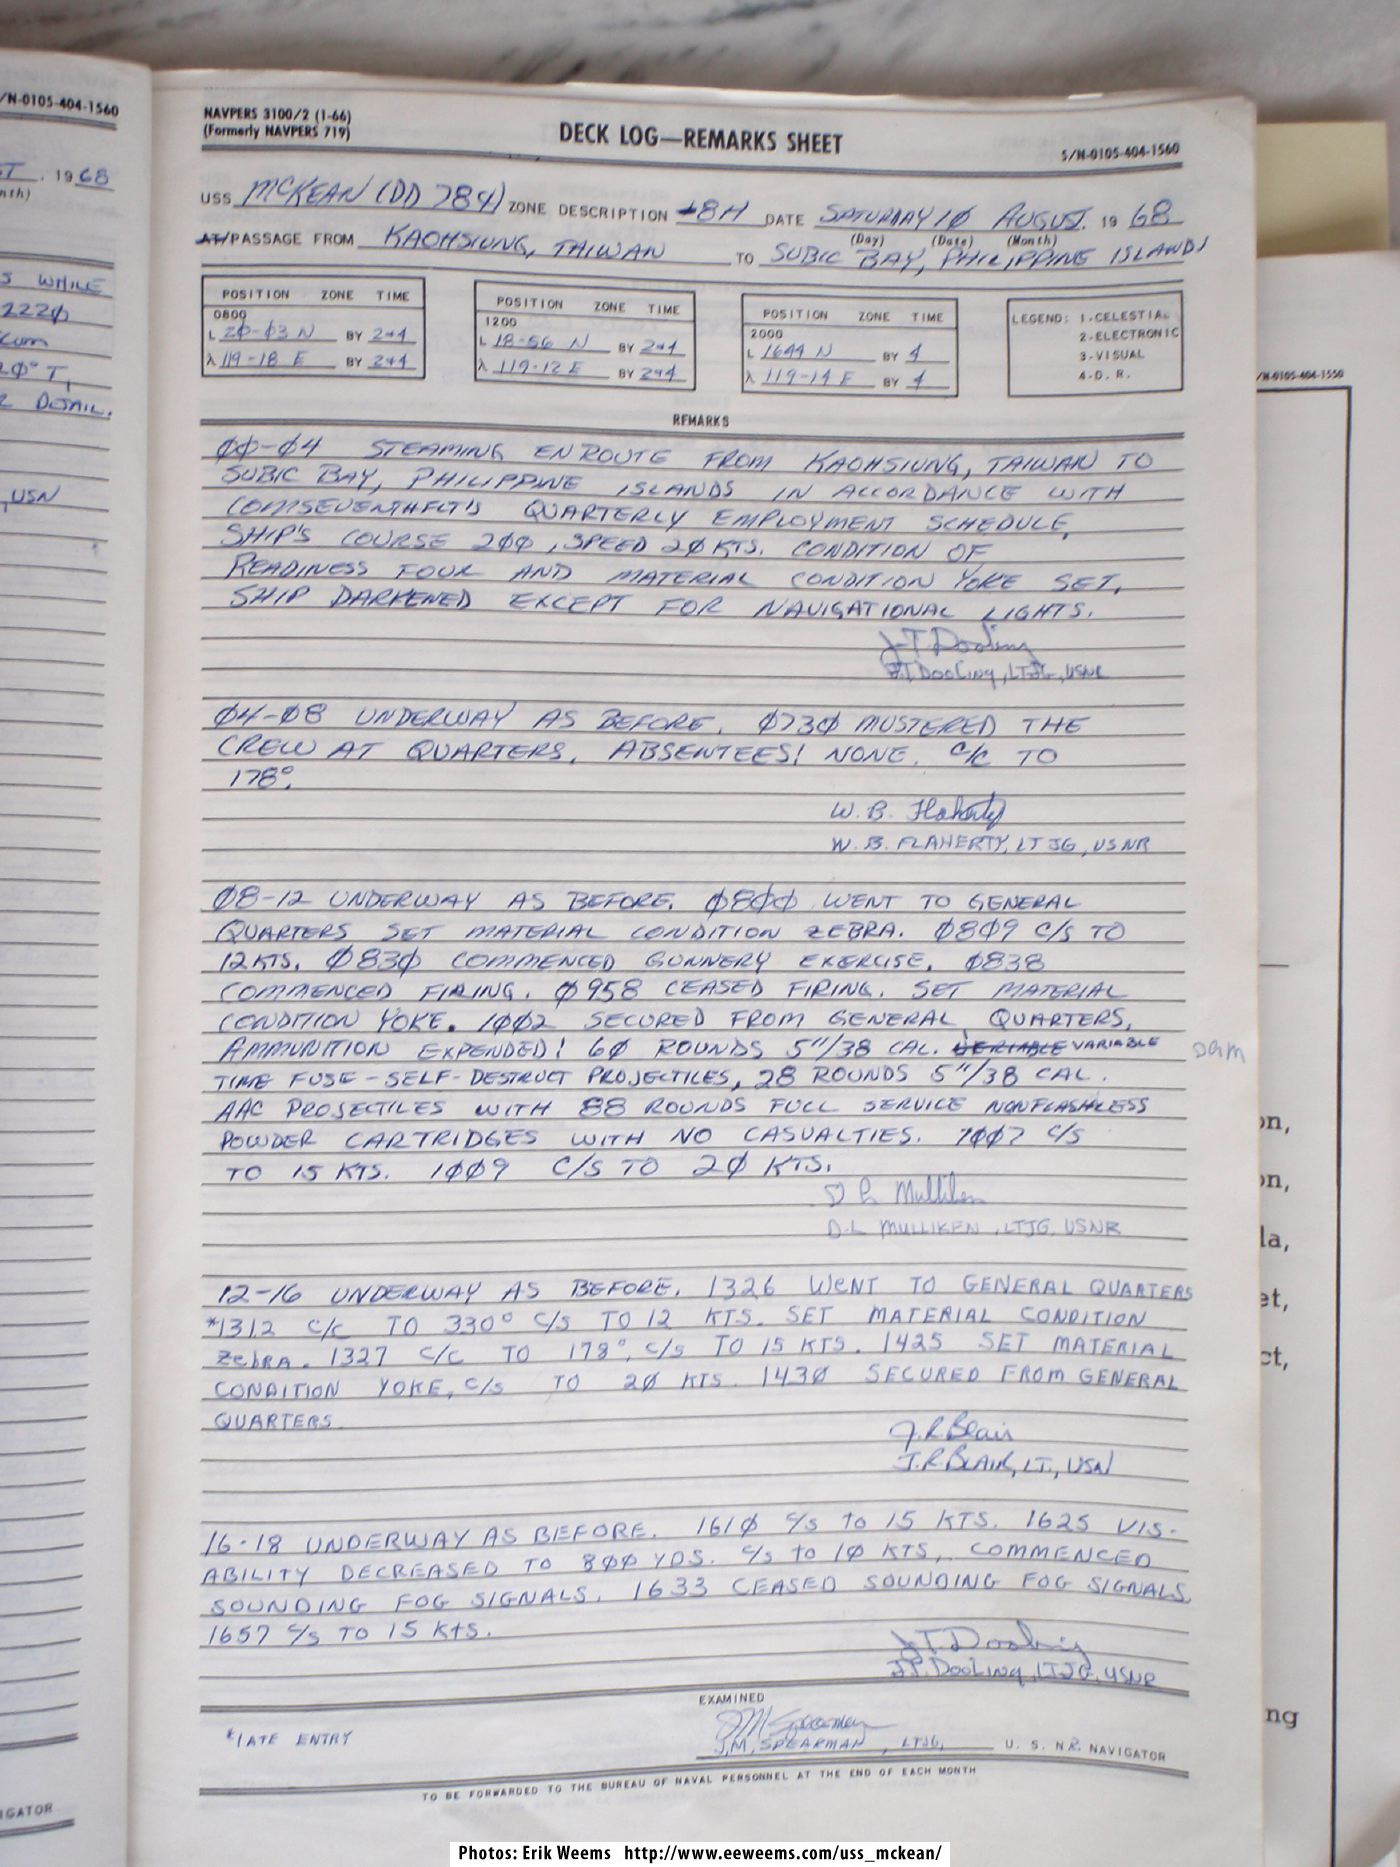 /N-0105-404-1560
T. 1968
nth)
S WHILE
222Ø
com
2Ø° T,
2 DETAIL.
, USN
IGATOR
NAVPERS 3100/2 (1-66)
(Formerly NAVPERS 719)
DECK LOG—REMARKS SHEET
S/N-0105-404-1560
USS MCKEAN (DD 784) ZONE DESCRIPTION -8H DATE SATURDAY 1Ø AUGUST. 19 68
(Day) (Date) (Month)
AT/PASSAGE FROM KAOHSIUNG, TAIWAN TO SUBIC BAY, PHILIPPINE ISLANDS
POSITION ZONE TIME
0800
L 2Ø-Ø3 N BY 2+4
λ 119-18 E BY 2+4
POSITION ZONE TIME
1200
L 18-56 N BY 2+4
λ 119-12 E BY 2+4
POSITION ZONE TIME
2000
L 1644 N BY 4
λ 119-14 E BY 4
LEGEND: 1.CELESTIAL
2-ELECTRONIC
3-VISUAL
4-D. R.
REMARKS
ØØ-Ø4 STEAMING ENROUTE FROM KAOHSIUNG, TAIWAN TO
SUBIC BAY, PHILIPPINE ISLANDS IN ACCORDANCE WITH
COMSEVENTHFLT'S QUARTERLY EMPLOYMENT SCHEDULE,
SHIP'S COURSE 2ØØ, SPEED 2Ø KTS. CONDITION OF
READINESS FOUR AND MATERIAL CONDITION YOKE SET,
SHIP DARKENED EXCEPT FOR NAVIGATIONAL LIGHTS.
J.T. Dooling
J.T. DOOLING, LTJG, USNR
Ø4-Ø8 UNDERWAY AS BEFORE. Ø73Ø MUSTERED THE
CREW AT QUARTERS, ABSENTEES: NONE. C/C TO
178°.
W. B. Flaherty
W. B. FLAHERTY, LTJG, USNR
Ø8-12 UNDERWAY AS BEFORE. Ø8ØØ WENT TO GENERAL
QUARTERS SET MATERIAL CONDITION ZEBRA. Ø8Ø9 C/S TO
12 KTS. Ø83Ø COMMENCED GUNNERY EXERCISE. Ø838
COMMENCED FIRING. Ø958 CEASED FIRING. SET MATERIAL
CONDITION YOKE. 1ØØ2 SECURED FROM GENERAL QUARTERS,
AMMUNITION EXPENDED: 6Ø ROUNDS 5"/38 CAL. VERIABLE VARIABLE DLM
TIME FUSE-SELF-DESTRUCT PROJECTILES, 28 ROUNDS 5"/38 CAL.
AAC PROJECTILES WITH 88 ROUNDS FULL SERVICE NONFLASHLESS
POWDER CARTRIDGES WITH NO CASUALTIES. 1ØØ7 C/S
TO 15 KTS. 1ØØ9 C/S TO 2Ø KTS.
D L Mulliken
D.L MULLIKEN, LTJG, USNR
12-16 UNDERWAY AS BEFORE. 1326 WENT TO GENERAL QUARTERS
*1312 C/C TO 330° C/S TO 12 KTS. SET MATERIAL CONDITION
ZEBRA. 1327 C/C TO 178°, C/S TO 15 KTS. 1425 SET MATERIAL
CONDITION YOKE, C/S TO 2Ø KTS. 143Ø SECURED FROM GENERAL
QUARTERS
J.R. Blair
J.R. BLAIR, LT., USN
16-18 UNDERWAY AS BEFORE. 161Ø C/S TO 15 KTS. 1625 VIS-
ABILITY DECREASED TO 8ØØ YDS. C/S TO 1Ø KTS, COMMENCED
SOUNDING FOG SIGNALS. 1633 CEASED SOUNDING FOG SIGNALS
1657 C/S TO 15 KTS.
J.T. Dooling
J.T. DOOLING, LTJG, USNR
EXAMINED
*LATE ENTRY
J M Spearman
J.M. SPEARMAN, LTJG, U. S. N.R. NAVIGATOR
TO BE FORWARDED TO THE BUREAU OF NAVAL PERSONNEL AT THE END OF EACH MONTH
/N-0105-404-1550
on,
on,
la,
et,
ct,
ng
Photos: Erik Weems http://www.eeweems.com/uss_mckean/